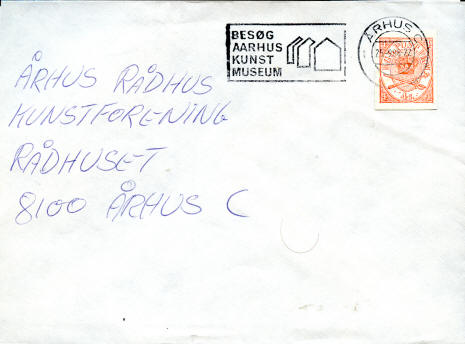 BESØG
AARHUS
KUNST
MUSEUM
ÅRHUS C
ÅRHUS RÅDHUS
KUNSTFORENING
RÅDHUSET
8100 ÅRHUS C